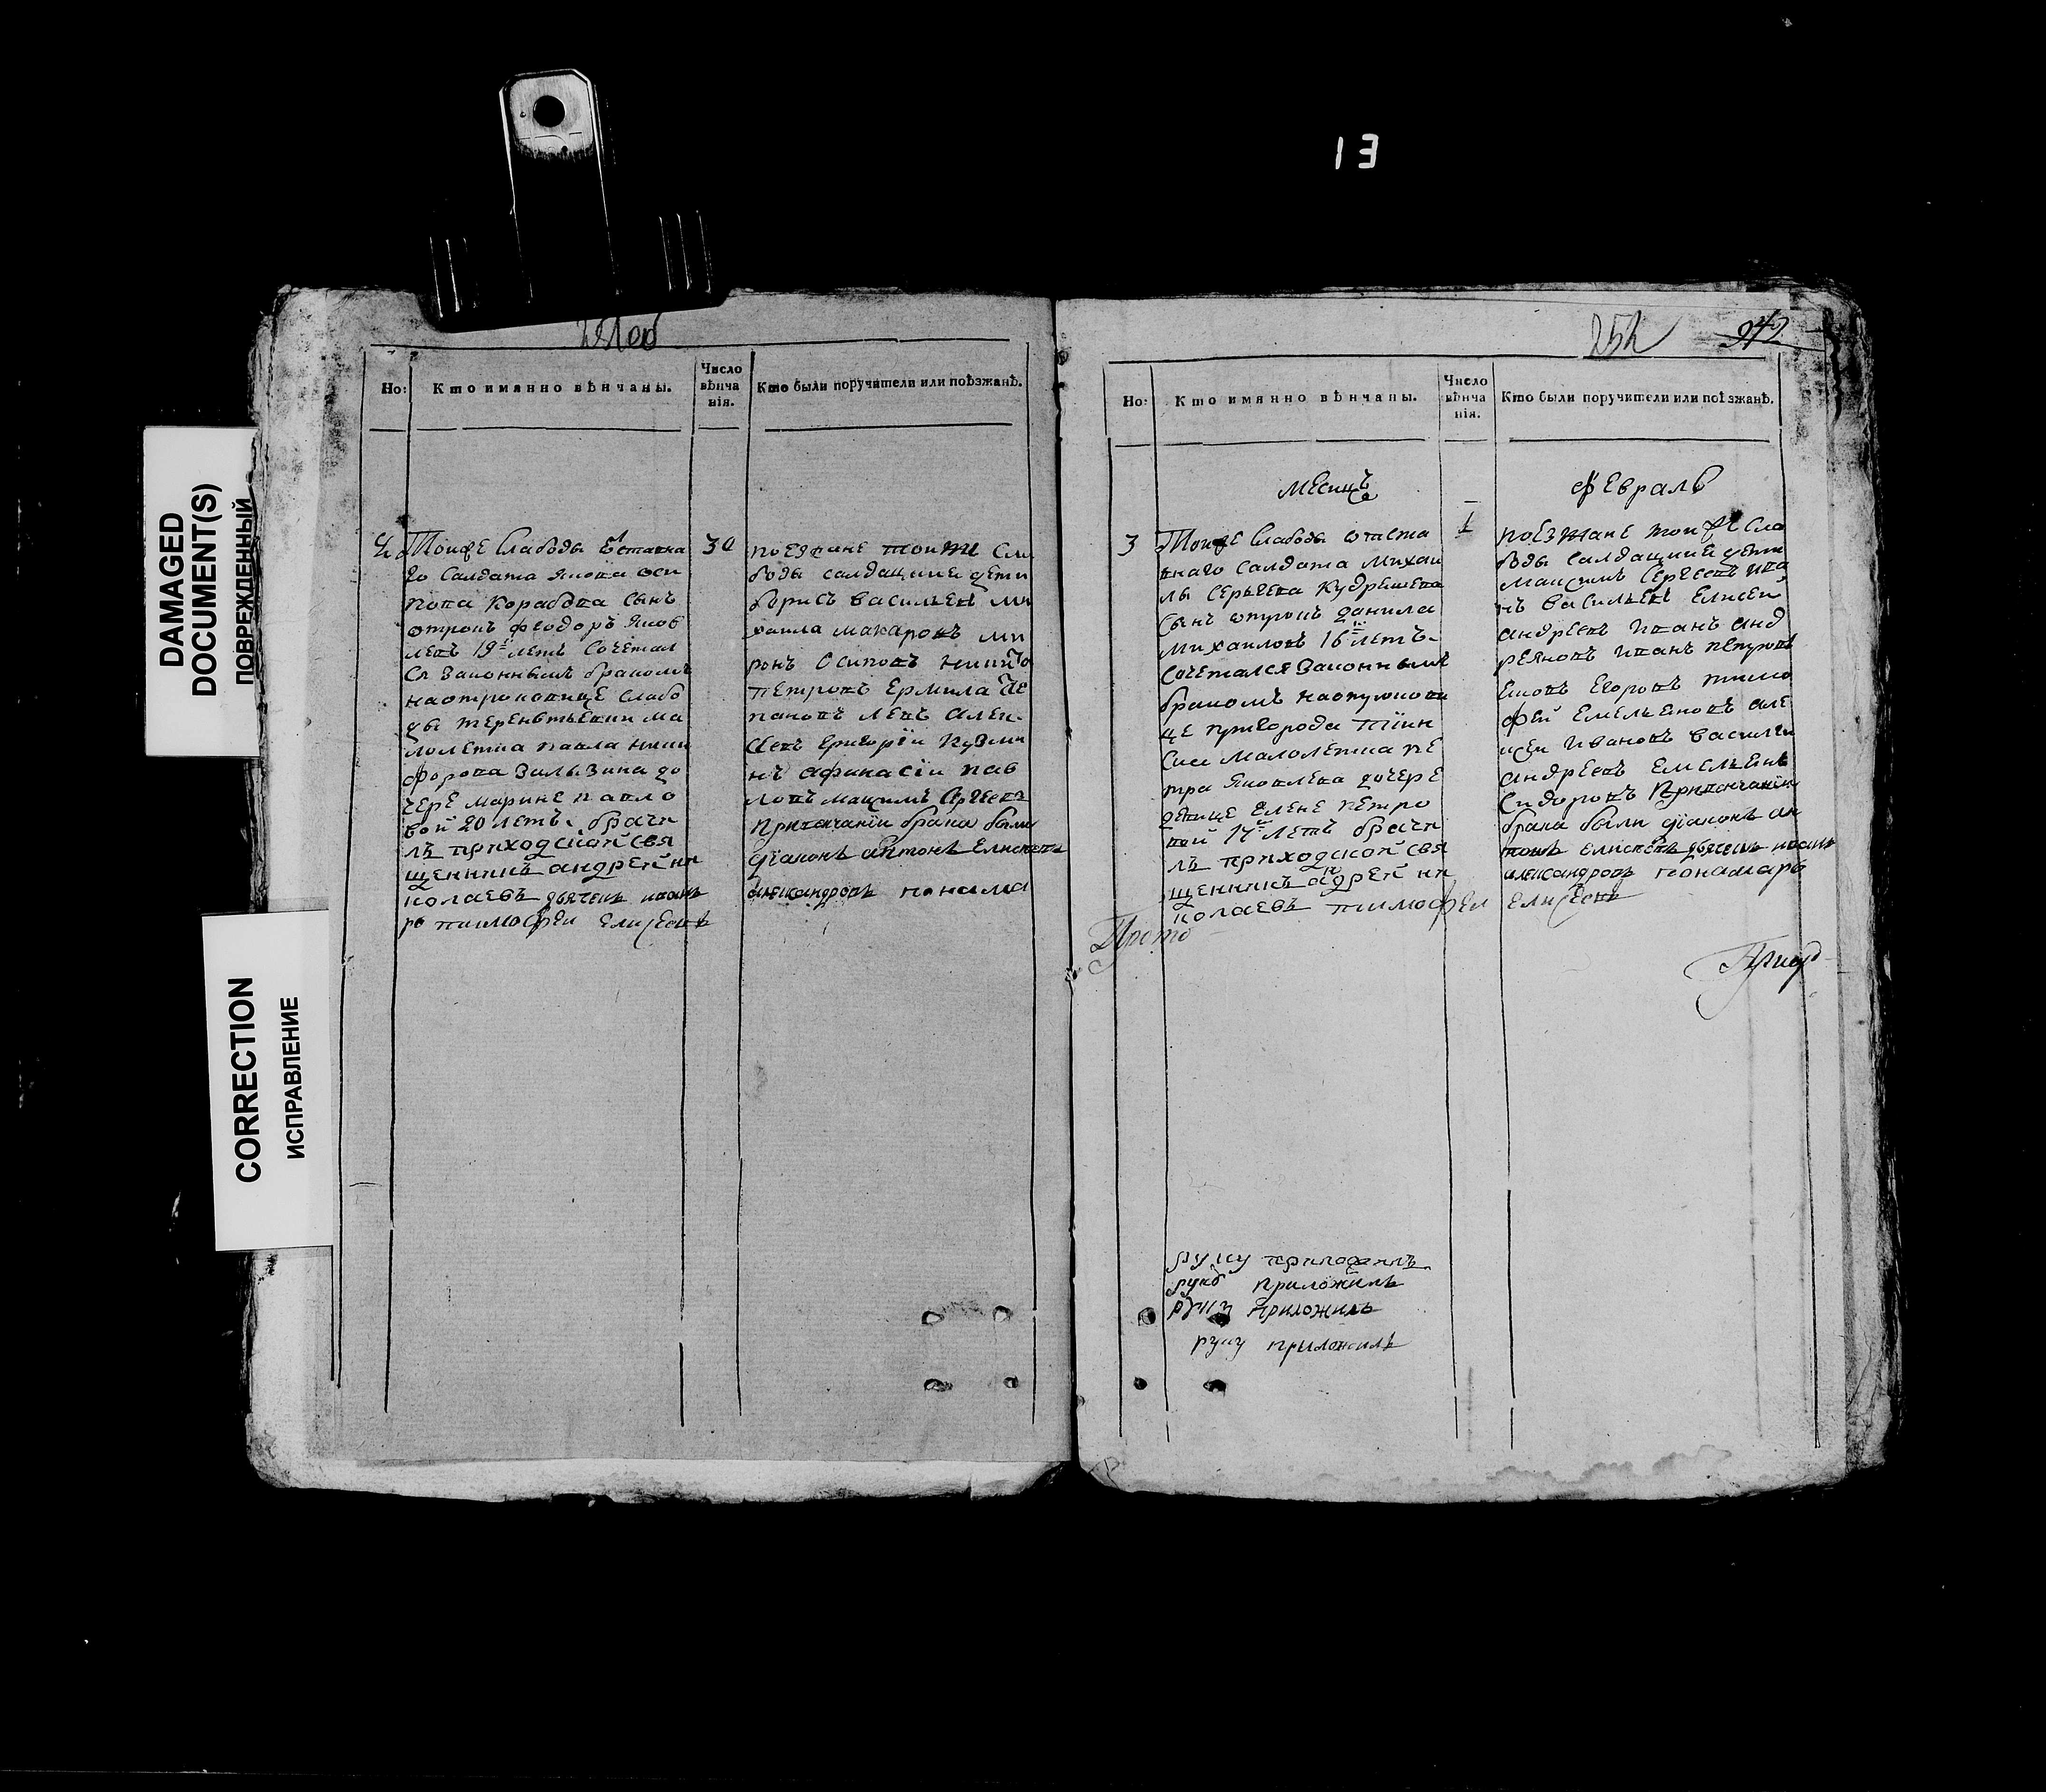 13
DAMAGED
DOCUMENT(S)
ПОВРЕЖДЕННЫЙ
CORRECTION
ИСПРАВЛЕНИЕ
251об
Но:
Кто имянно вѣнчаны.
Число
вѣнча
нія.
Кто были поручители или поѣзжанѣ.
Тойже Слабоды отставна
го Салдата Якова оси
пова Корабова Сынъ
отрокъ феодоръ Яков
левъ 19 летъ Сочетал
ся Законнымъ бракомъ
наотроковице Слабо
ды терентьевки ма
лолетка павла ники
форова Зильзина до
чере марине павло
вой 20 летъ. брачи
лъ приходской свя
щенникъ андрей ни
колаевъ дьячекъ иванъ
ръ тимофеи Елисеевъ
30
поезжане тойже Сла
боды салдацкие дети
борисъ васильевъ ми
хаила макаровъ ми
ронъ Осиповъ
петровъ Ермила
пановъ левъ алек
сеевъ григорїи Кузми
нъ афанасїи пав
ловъ максимъ Сергеевъ
Привенчанїи брака были
дїаконъ антонъ
александровъ понама
252
Но:
Кто имянно вѣнчаны.
Число
вѣнча
нія.
Кто были поручители или поѣзжанѣ.
Месицъ
февраль
3
Тойже Слабоды отста
внаго Салдата Михаи
лы Серьгева Кудряшева
Сынъ отрокъ данила
михаиловъ 16 летъ
Сочетался Законнымъ
бракомъ наотрокови
це пригорода тїин
ска малолетка пе
тра Яковлева дочере
девице Елене петро
вой 17 летъ брачи
лъ приходской Свя
щенникъ андрей ни
колаевъ тимофеи Елисеевъ
1
поезжане тойже Сла
боды Салдацкие дети
максимъ Сергеевъ ива
нъ васильевъ Елисеи
андреевъ иванъ анд
реяновъ иванъ петровъ
Егоровъ тимо
фей Емельяновъ але
ксеи Ивановъ василеи
андреевъ Емельянъ
Сидоровъ Привенчанїи
брака были дїаконъ ан
тонъ дьячекъ иванъ
александровъ понамарь
Прото
руку приложилъ
руку приложилъ
руку приложилъ
руку приложилъ